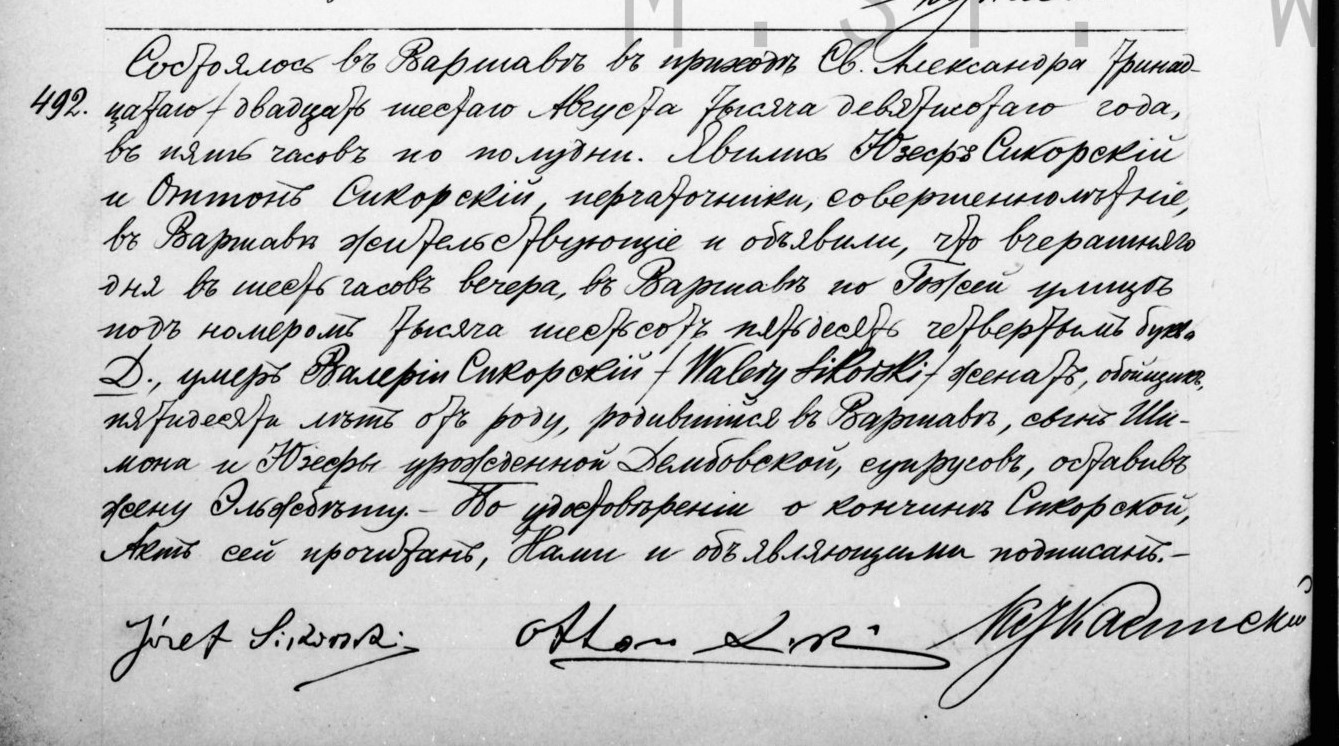 M.ST.W
Состоялось въ Варшавѣ въ приходѣ Св. Александра тринад-
492. цатаго / двадцать шестаго Августа тысяча девятисотаго года,
въ пять часовъ по полудни. Явились Юзефъ Сикорскій
и Оттонъ Сикорскій, перчаточники, совершеннолѣтніе,
въ Варшавѣ жительствующіе и объявили, что вчерашняго
дня въ шесть часовъ вечера, въ Варшавѣ по Гожей улицѣ
подъ номеромъ тысяча шестьсотъ пятьдесятъ четвертымъ буква
D., умеръ Валерій Сикорскій / Walery Sikorski / женатъ, обойщикъ,
пятидесяти лѣтъ отъ роду, родившійся въ Варшавѣ, сынъ Ши-
мона и Юзефы урожденной Дембовской, супруговъ, оставивъ
жену Эльжбѣту. – По удостовѣреніи о кончинѣ Сикорской,
Актъ сей прочитанъ, Нами и объявляющими подписанъ. –
Józef Sikorski Otton